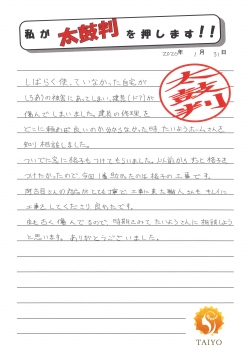 私が太鼓判を押します!!
2020年 1月 31日
太鼓判
しばらく使っていなかった自宅が
しろありの被害にあってしまい、建具(ドア)が
傷んでしまいました。建具の修理を
どこに頼めば良いのか分からなかった時、たいようホームさんを
知り相談しました。
ついでに窓に格子もつけてもらいました。以前からずっと格子を
つけたかったので、今回1番助かったのは格子の工事です。
さんの対応がとても丁寧で工事に来た職人さんもキレイに
工事をしてくださり良かったです。
家も古く傷んでるので、時期をみてたいようさんに相談しよう
と思います。ありがとうございました。
TAIYO